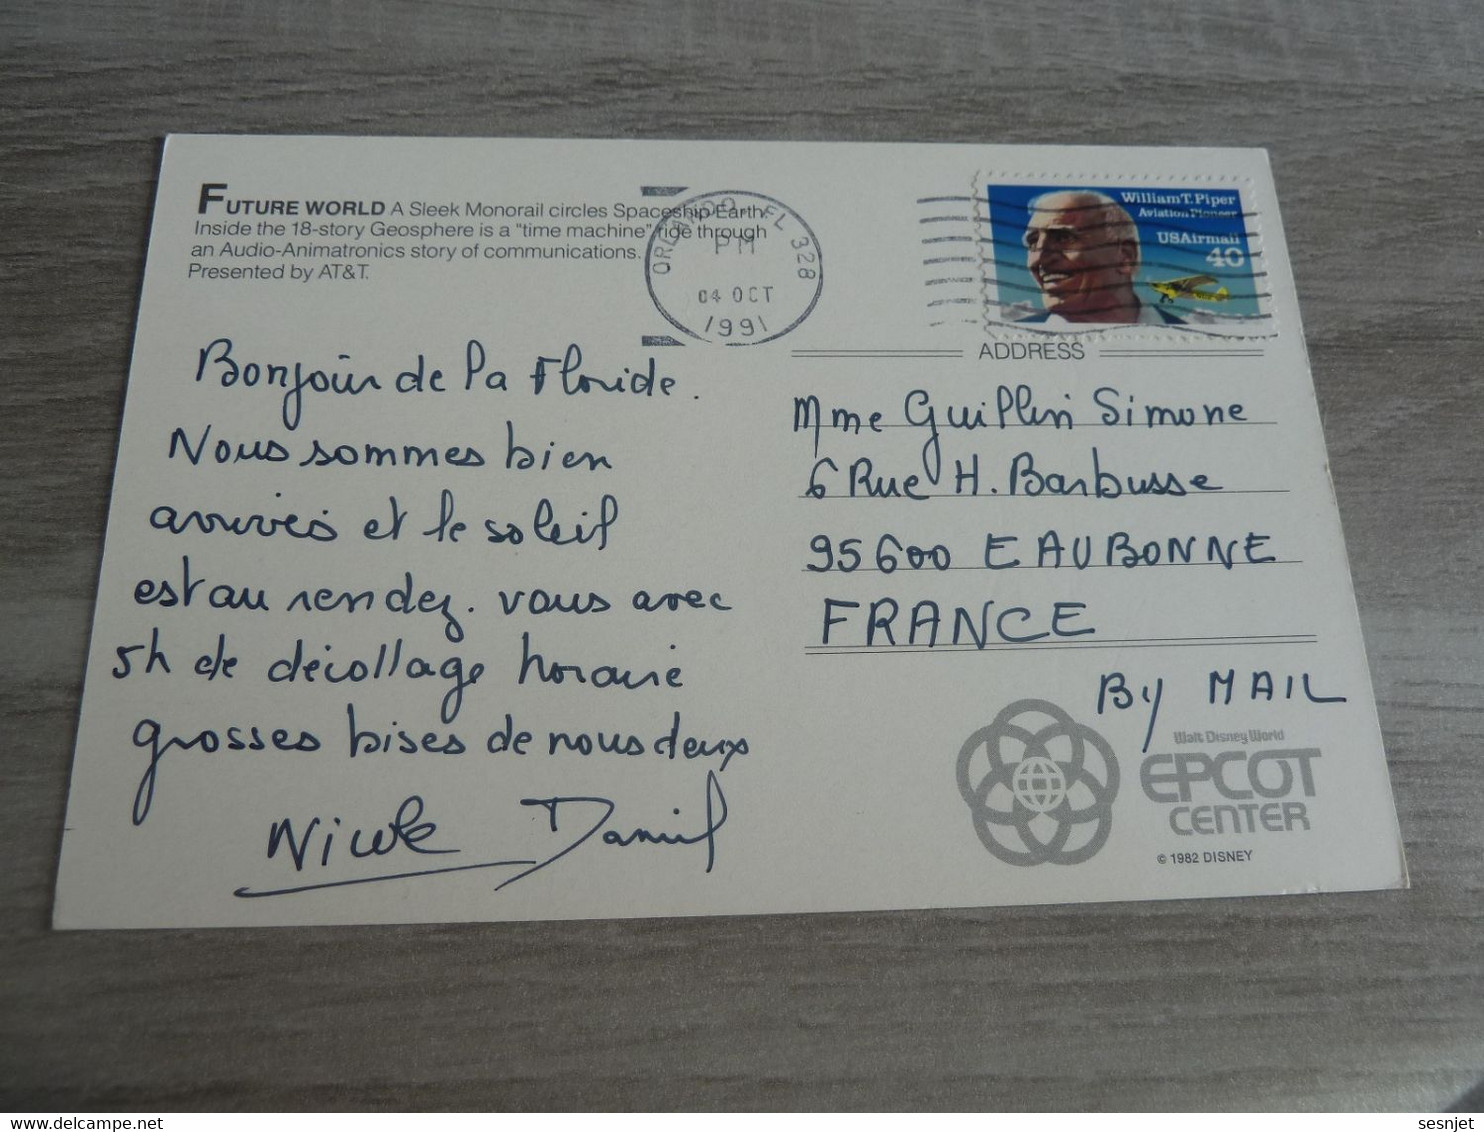 FUTURE WORLD A Sleek Monorail circles Spaceship Earth.
Inside the 18-story Geosphere is a "time machine" ride through
an Audio-Animatronics story of communications.
Presented by AT&T.
ORLANDO, FL 328
PM
04 OCT
1991
William T. Piper
Aviation Pioneer
USAirmail
40
Bonjour de la Floride.
Nous sommes bien
arrivés et le soleil
est au rendez-vous avec
5h de décollage horaire
grosses bises de nous deux
Nicole Daniel
ADDRESS
Mme Guillin Simone
6 Rue H. Barbusse
95600 EAUBONNE
FRANCE
By MAIL
Walt Disney World
EPCOT
CENTER
© 1982 DISNEY
sesnjet